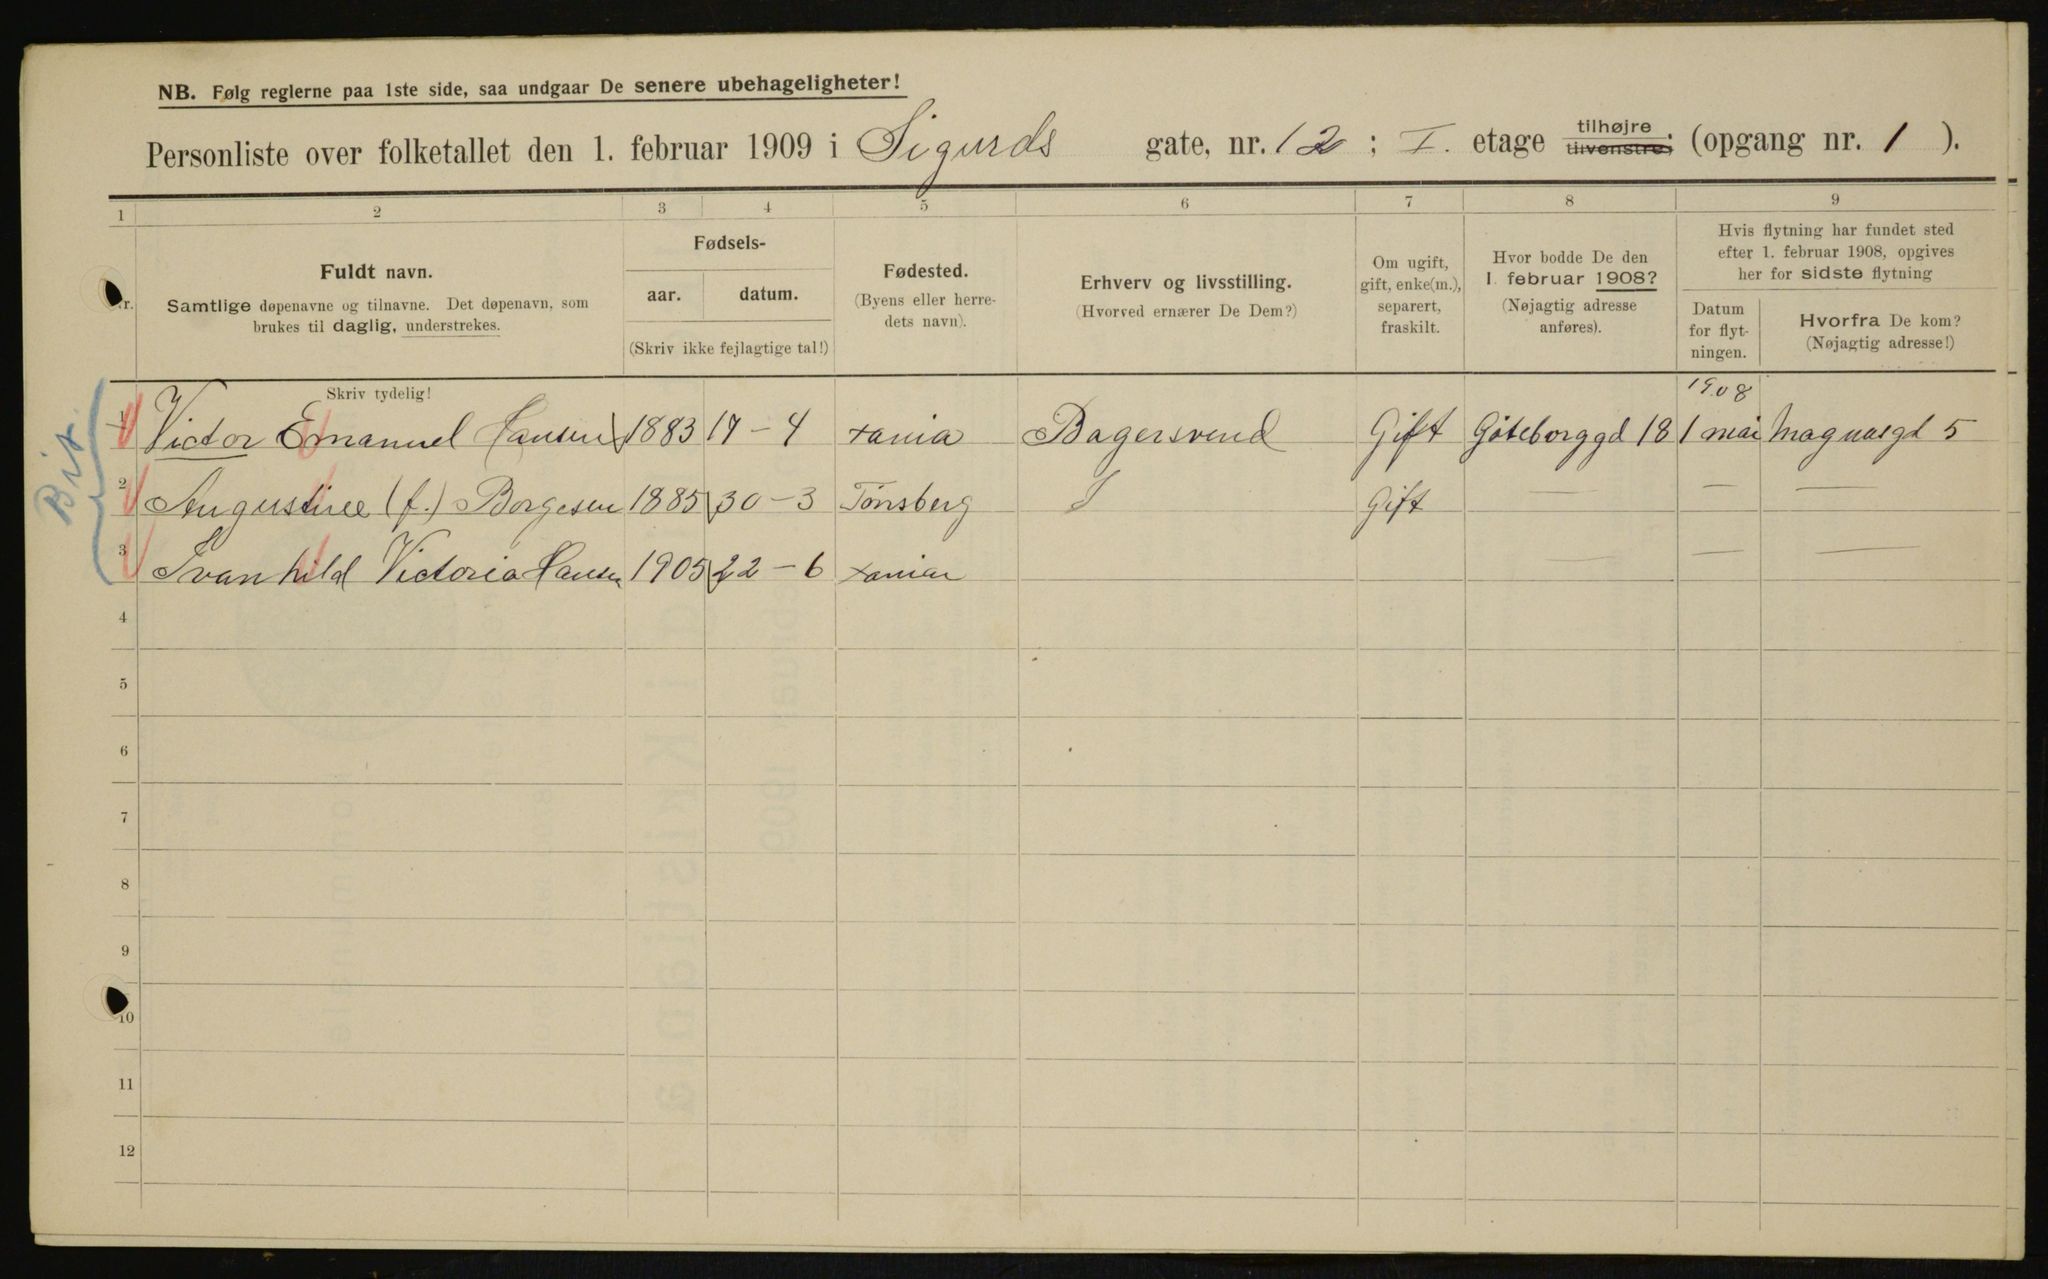 NB. Følg reglerne paa 1ste side, saa undgaar De senere ubehageligheter!
Personliste over folketallet den 1. februar 1909 i Sigurds gate, nr. 12 ; I. etage tilhøjre, tilvenstre, (opgang nr. 1 ).
1 2 3 4 5 6 7 8 9
Nr.
Fuldt navn.
Samtlige døpenavne og tilnavne. Det døpenavn, som
brukes til daglig, understrekes.
Skriv tydelig!
Fødsels-
aar. datum.
(Skriv ikke fejlagtige tal!)
Fødested.
(Byens eller herre-
dets navn).
Erhverv og livsstilling.
(Hvorved ernærer De Dem?)
Om ugift,
gift, enke(m.),
separert,
fraskilt.
Hvor bodde De den
1. februar 1908?
(Nøjagtig adresse
anføres).
Hvis flytning har fundet sted
efter 1. februar 1908, opgives
her for sidste flytning
Datum
for flyt-
ningen.
Hvorfra De kom?
(Nøjagtig adresse!)
1908
1 Victor Emanuel Hansen 1883 17-4 Xania Bagersvend Gift Göteborggd 18 1 mai Magnusgd 5
2 Augustine (f.) Borgesen 1885 30-3 Tönsberg Gift — — —
3 Svanhild Victoria Hansen 1905 22-6 Xania — — —
4
5
6
7
8
9
10
11
12